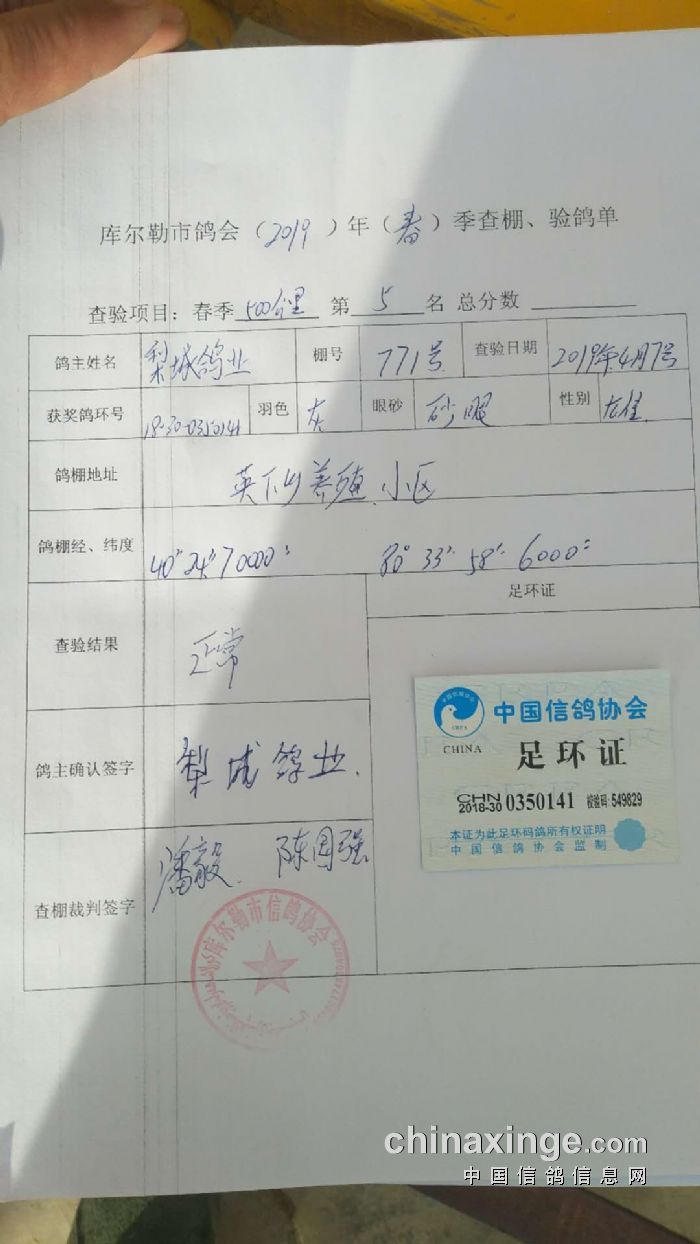 库尔勒市鸽会（2019）年（春）季查棚、验鸽单
查验项目：春季 500公里 第 5 名 总分数
鸽主姓名 梨城鸽业 棚号 771号 查验日期 2019年4月7号
获奖鸽环号 18-30-0350141 羽色 灰 眼砂 砂眼 性别
鸽棚地址 英下乡养殖小区
鸽棚经、纬度 40° 24' 70000" 80° 33' 58' 6000"
足环证
查验结果 正常
鸽主确认签字 梨城鸽业.
查棚裁判签字 潘毅. 陈国强
库尔勒市信鸽协会
中国信鸽协会
CHINA 足环证
CHN 2018-30 0350141 校验码:549829
本证为此足环码鸽所有权证明
中国信鸽协会监制
chinaxinge.com
中国信鸽信息网